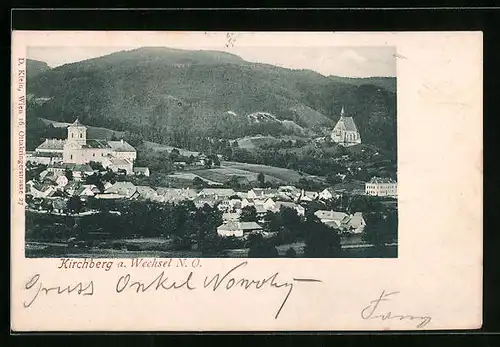 D. Klein, Wien 16. Ottakringerstrasse 27
Kirchberg a. Wechsel N. O.
Gruss Onkel Nowotny
Fany